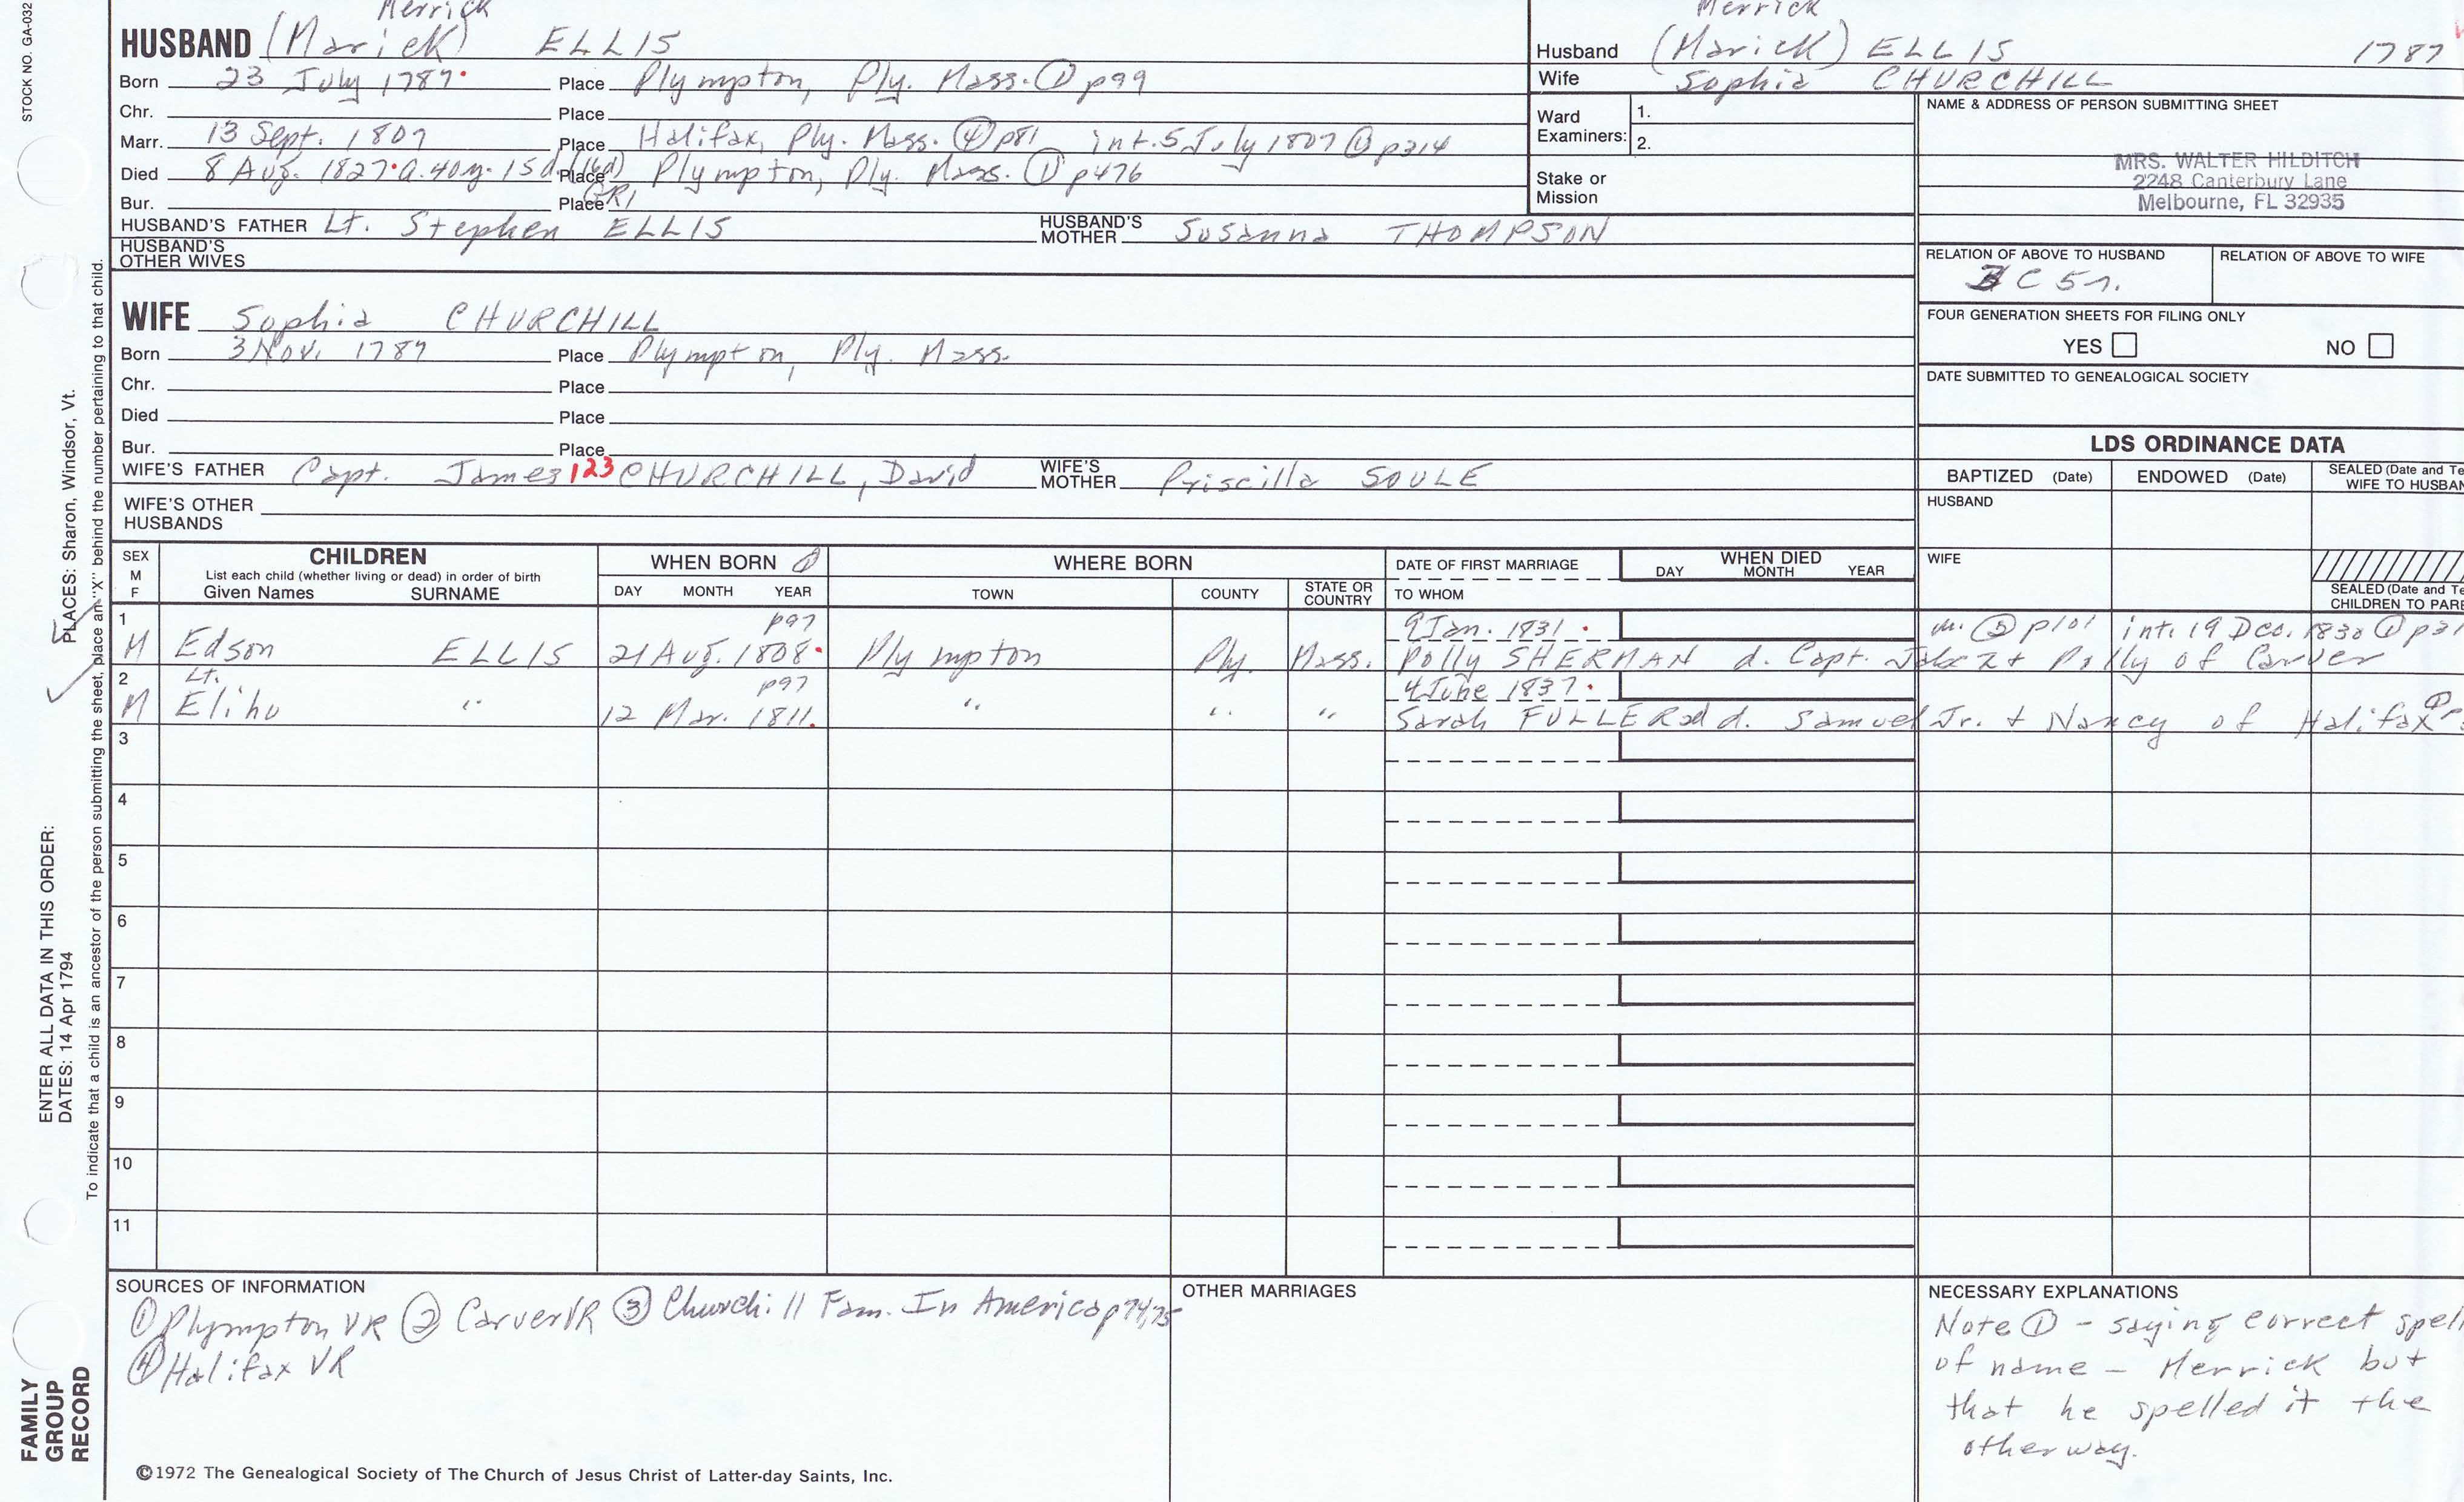 STOCK NO. GA-032
Merrick
HUSBAND (Marick) ELLIS
Born 23 July 1787. Place Plympton, Ply. Mass. ① p99
Chr. Place
Marr. 13 Sept. 1807 Place Halifax, Ply. Mass. ④ p81 int. 5 July 1807 ① p314
Died 8 Aug. 1827. a. 40y. 15d. (16d) Place Plympton, Ply. Mass. ① p476
Bur. Place GR1
HUSBAND'S FATHER Lt. Stephen ELLIS HUSBAND'S MOTHER Susanna THOMPSON
HUSBAND'S OTHER WIVES
WIFE Sophia CHURCHILL
Born 3 Nov. 1789 Place Plympton, Ply. Mass.
Chr. Place
Died Place
Bur. Place
WIFE'S FATHER Capt. James 123 CHURCHILL, David WIFE'S MOTHER Priscilla SOULE
WIFE'S OTHER HUSBANDS
Merrick
Husband (Marick) ELLIS 1787
Wife Sophia CHURCHILL
Ward Examiners: 1.
2.
Stake or Mission
NAME & ADDRESS OF PERSON SUBMITTING SHEET
MRS. WALTER HILDITCH
2248 Canterbury Lane
Melbourne, FL 32935
RELATION OF ABOVE TO HUSBAND RELATION OF ABOVE TO WIFE
FOUR GENERATION SHEETS FOR FILING ONLY
YES NO
DATE SUBMITTED TO GENEALOGICAL SOCIETY
LDS ORDINANCE DATA
BAPTIZED (Date) ENDOWED (Date) SEALED (Date and Te
WIFE TO HUSBAN
HUSBAND
WIFE
SEALED (Date and Te
CHILDREN TO PARE
SEX M F CHILDREN WHEN BORN ① WHERE BORN DATE OF FIRST MARRIAGE WHEN DIED
List each child (whether living or dead) in order of birth DAY MONTH YEAR
Given Names SURNAME DAY MONTH YEAR TOWN COUNTY STATE OR COUNTRY TO WHOM
1 p97 9 Jan. 1831. m. ② p101 int. 19 Dec. 1830 ① p31
M Edson ELLIS 21 Aug. 1808. Plympton Ply. Mass. Polly SHERMAN d. Capt. Jabez + Polly of Carver
2 Lt. p97 4 June 1837.
M Elihu " 12 Mar. 1811. " " " Sarah FULLER d. Samuel Jr. + Nancy of Halifax ①
3
4
5
6
7
8
9
10
11
SOURCES OF INFORMATION
① Plympton VR ② Carver VR ③ Churchill Fam. In America p74,75
④ Halifax VR
OTHER MARRIAGES
NECESSARY EXPLANATIONS
Note ① - saying correct spell
of name - Merrick but
that he spelled it the
other way.
©1972 The Genealogical Society of The Church of Jesus Christ of Latter-day Saints, Inc.
ENTER ALL DATA IN THIS ORDER:
DATES: 14 Apr 1794 PLACES: Sharon, Windsor, Vt.
To indicate that a child is an ancestor of the person submitting the sheet, place an "X" behind the number pertaining to that child.
FAMILY
GROUP
RECORD